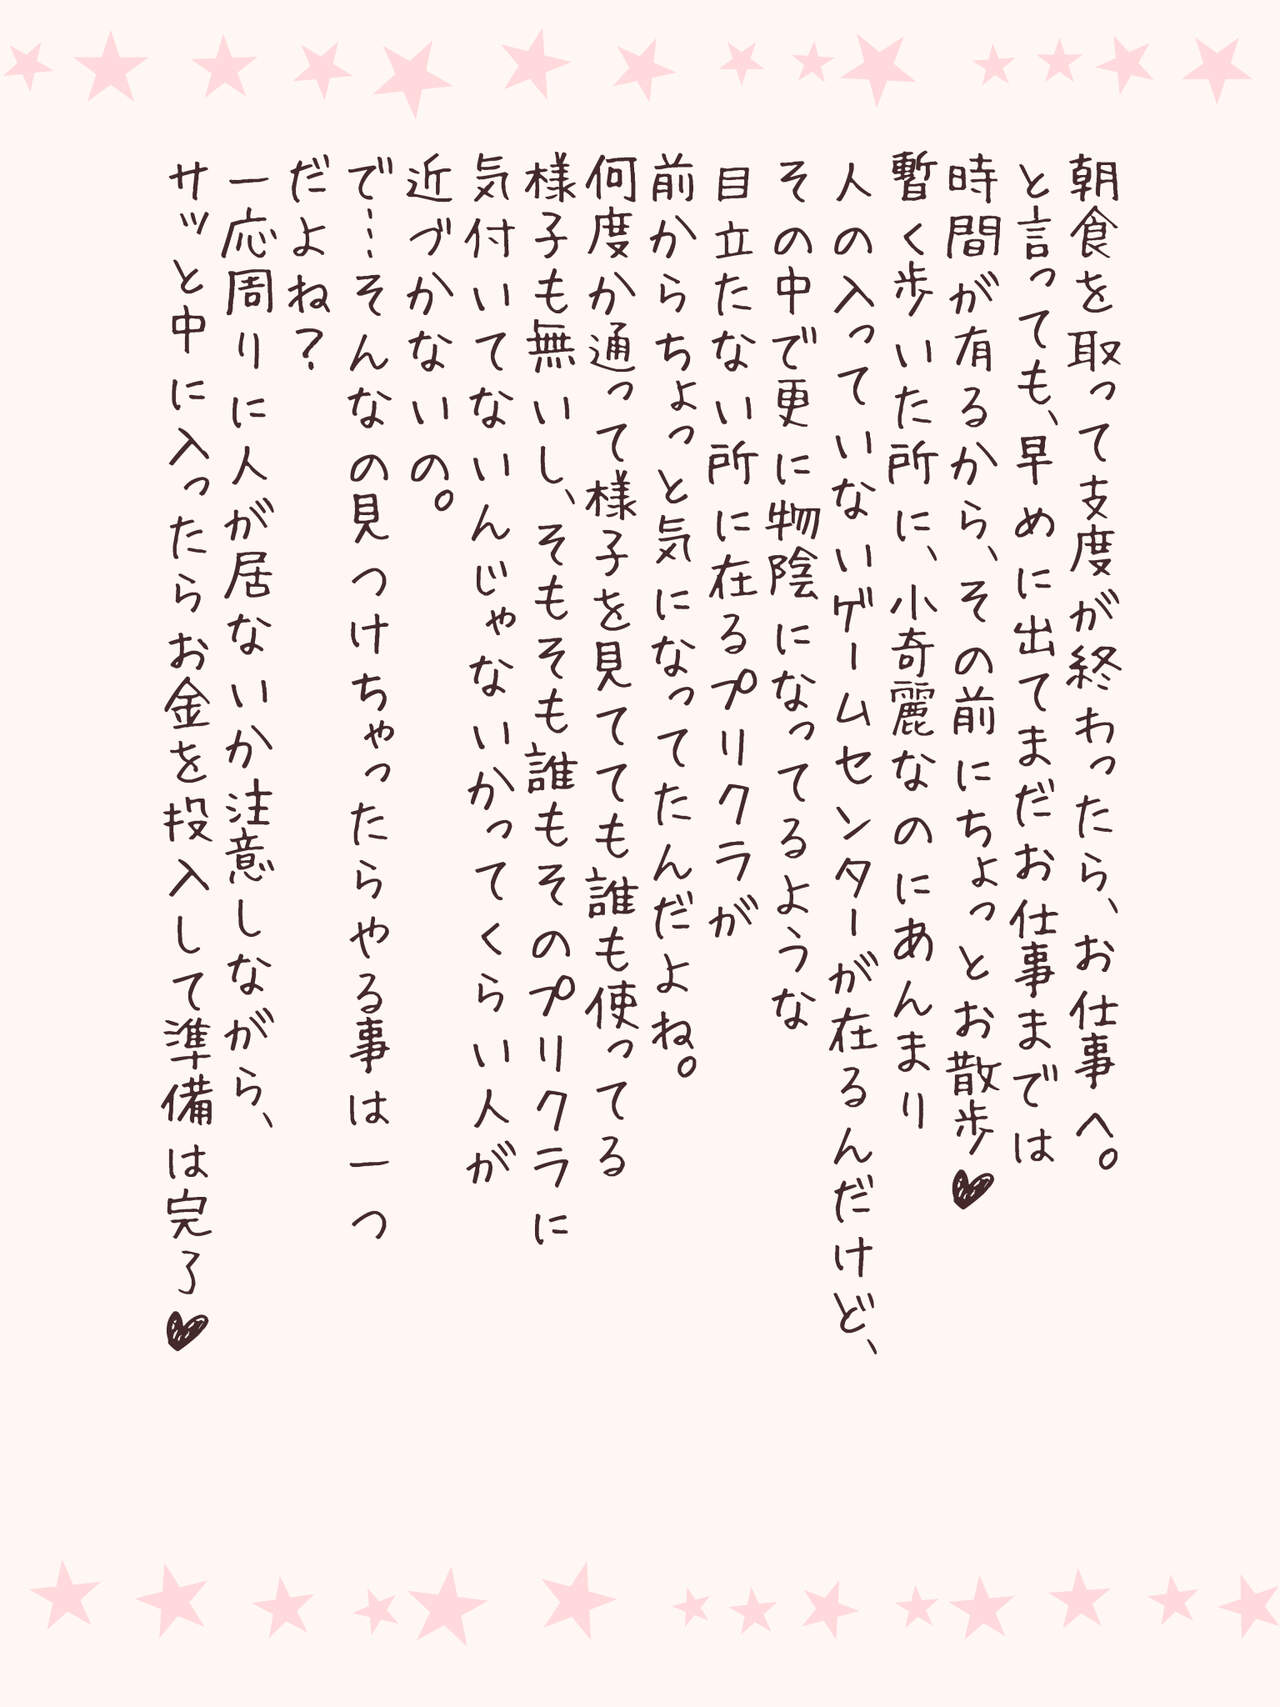 朝食を取って支度が終わったら、お仕事へ。
と言っても、早めに出てまだお仕事までは
時間が有るから、その前にちょっとお散歩♥
暫く歩いた所に、小奇麗なのにあんまり
人の入っていないゲームセンターが在るんだけど、
その中で更に物陰になってるような
目立たない所に在るプリクラが
前からちょっと気になってたんだよね。
何度か通って様子を見てても誰も使ってる
様子も無いし、そもそも誰もそのプリクラに
気付いてないんじゃないかってくらい人が
近づかないの。
で…そんなの見つけちゃったらやる事は一つ
だよね?
一応周りに人が居ないか注意しながら、
サッと中に入ったらお金を投入して準備は完了♥